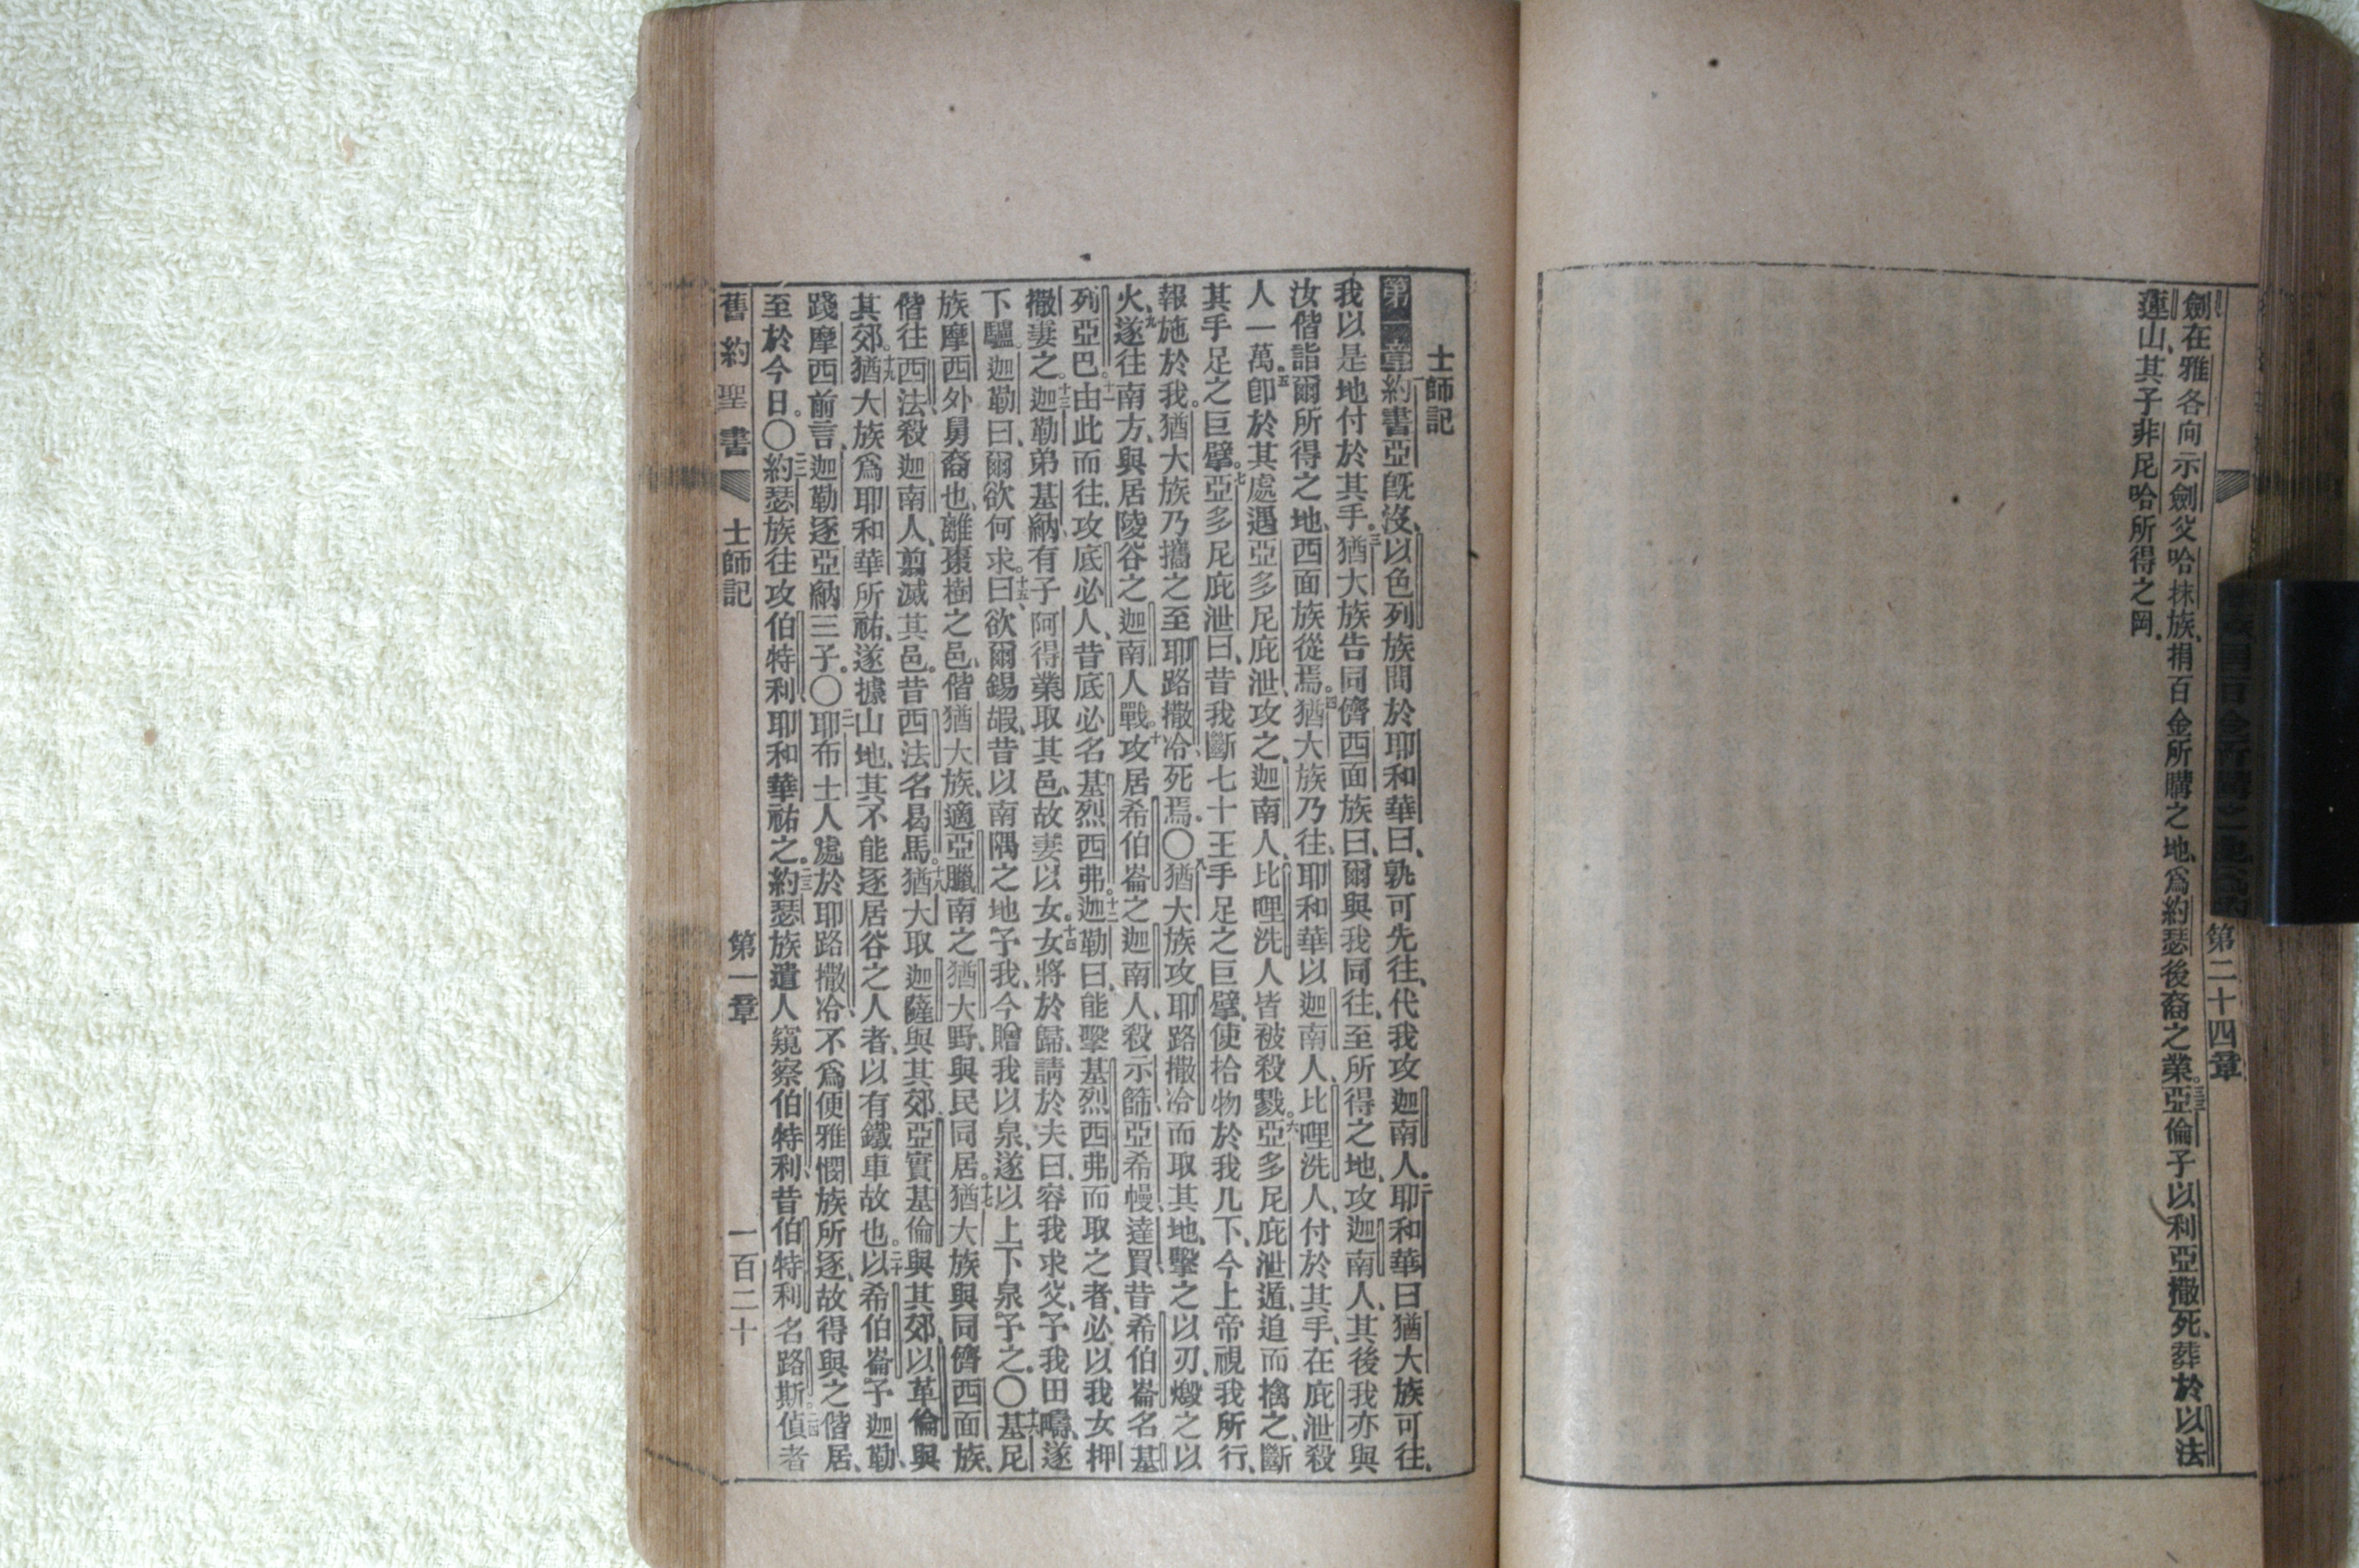 第二十四章
劍在雅各向示劍父哈抹族、捐百金所購之地、爲約瑟後裔之業。三三亞倫子以利亞撒死、葬於以法
蓮山、其子非尼哈所得之岡。
士師記
第一章約書亞旣沒、以色列族問於耶和華曰、孰可先往、代我攻迦南人。二耶和華曰猶大族可往、
我以是地付於其手。三猶大族告同儕西面族曰、爾與我同往、至所得之地、攻迦南人、其後我亦與
汝偕詣爾所得之地、西面族從焉。四猶大族乃往、耶和華以迦南人、比哩洗人、付於其手、在庇泄殺
人一萬。五卽於其處遇亞多尼庇泄、攻之、迦南人、比哩洗人皆被殺戮。六亞多尼庇泄遁、追而擒之、斷
其手足之巨擘。七亞多尼庇泄曰、昔我斷七十王手足之巨擘、使拾物於我几下、今上帝視我所行、
報施於我。猶大族乃攜之至耶路撒冷死焉。〇八猶大族攻耶路撒冷而取其地、擊之以刃、燬之以
火、九遂往南方、與居陵谷之迦南人戰。十攻居希伯崙之迦南人、殺示篩、亞希幔、達買、昔希伯崙名基
列亞巴。十一由此而往、攻底必人、昔底必名基烈西弗。十二迦勒曰、能擊基烈西弗而取之者、必以我女押
撒妻之。十三迦勒弟基納、有子阿得業取其邑、故妻以女。十四女將於歸、請於夫曰、容我求父、予我田疇、遂
下驢、迦勒曰、爾欲何求。十五曰、欲爾錫嘏、昔以南隅之地予我、今贈我以泉、遂以上下泉予之。〇十六基尼
族摩西外舅裔也、離棗樹之邑、偕猶大族、適亞臘南之猶大野、與民同居。十七猶大族與同儕西面族、
偕往西法、殺迦南人、剪滅其邑。昔西法名曷馬。十八猶大取迦薩與其郊、亞實基倫與其郊、以革倫與
其郊。十九猶大族爲耶和華所祐、遂據山地、其不能逐居谷之人者、以有鐵車故也。二十以希伯崙予迦勒、
踐摩西前言、迦勒逐亞納三子。〇二一耶布士人處於耶路撒冷、不爲便雅憫族所逐、故得與之偕居、
至於今日。〇二二約瑟族往攻伯特利、耶和華祐之。二三約瑟族遣人窺察伯特利、昔伯特利名路斯。二四偵者
舊約聖書 士師記 第一章 一百二十